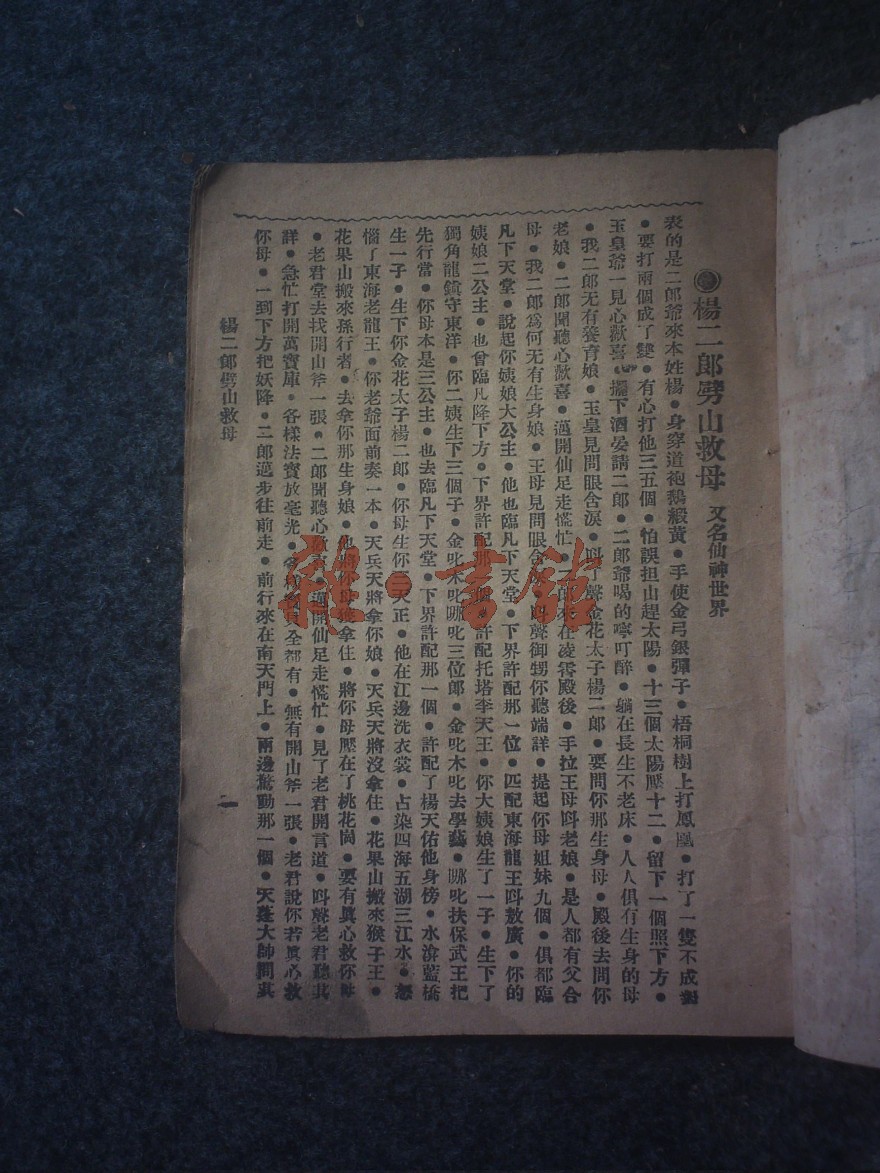 楊二郎劈山救母 又名仙神世界
表的是二郎爺來本姓楊●身穿道袍鵝緞黃●手使金弓銀彈子●梧桐樹上打鳳凰●打了一隻不成
●要打兩個成了雙●有心打他三五個●怕誤担山趕太陽●十三個太陽壓十二●留下一個照下方●
玉皇爺一見心歡喜●擺下酒晏請二郎●二郎爺喝的嚀叮醉●躺在長生不老床●人人俱有生身的母
●我二郎无有養育娘●玉皇見問眼含淚●呌了聲金花太子楊二郎●要問你那生身母●殿後去問你
老娘●二郎聞聽心歡喜●邁開仙足走慌忙●二郎來在凌霄殿後●手拉王母呌老娘●是人都有父合
母●我二郎爲何无有生身娘●王母見問眼含●呌聲御甥你聽端詳●提起你母姐妹九個●俱都臨
凡下天堂●說起你姨娘大公主●他也臨凡下天堂●下界許配那一位●匹配東海龍王呌敖廣●你的
姨娘二公主●也曾臨凡降下方●下界許配那個●許配托塔李天王●你大姨娘生了一子●生下了
獨角龍鎮守東洋●你二姨生下三個子●金叱木叱哪叱三位郎●金叱木叱去學藝●哪叱扶保武王把
先行當●你母本是三公主●也去臨凡下天堂●下界許配那一個●許配了楊天佑他身傍●水渰藍橋
生一子●生下你金花太子楊二郎●你母生你三天正●他在江邊洗衣裳●占染四海五湖三江水●惹
惱了東海老龍王●你老爺面前奏一本●天兵天將拿你娘●天兵天將沒拿住●花果山搬來猴子王●
花果山搬來孫行者●去拿你那生身娘●他將你母拿住●將你母壓在了桃花崗●要有眞心救你母
●老君堂去找開山斧一張●二郎聞聽心●邁開仙足走慌忙●見了老君開言道●呌聲老君聽其
詳●急忙打開萬寶庫●各樣法寶放毫光●全都有●無有開山斧一張●老君說你若眞心救
你母●一到下方把妖降●二郎邁步往前走●前行來在南天門上●兩邊驚動那一個●天蓬大帥問其
楊二郎劈山救母
一
雜·書館